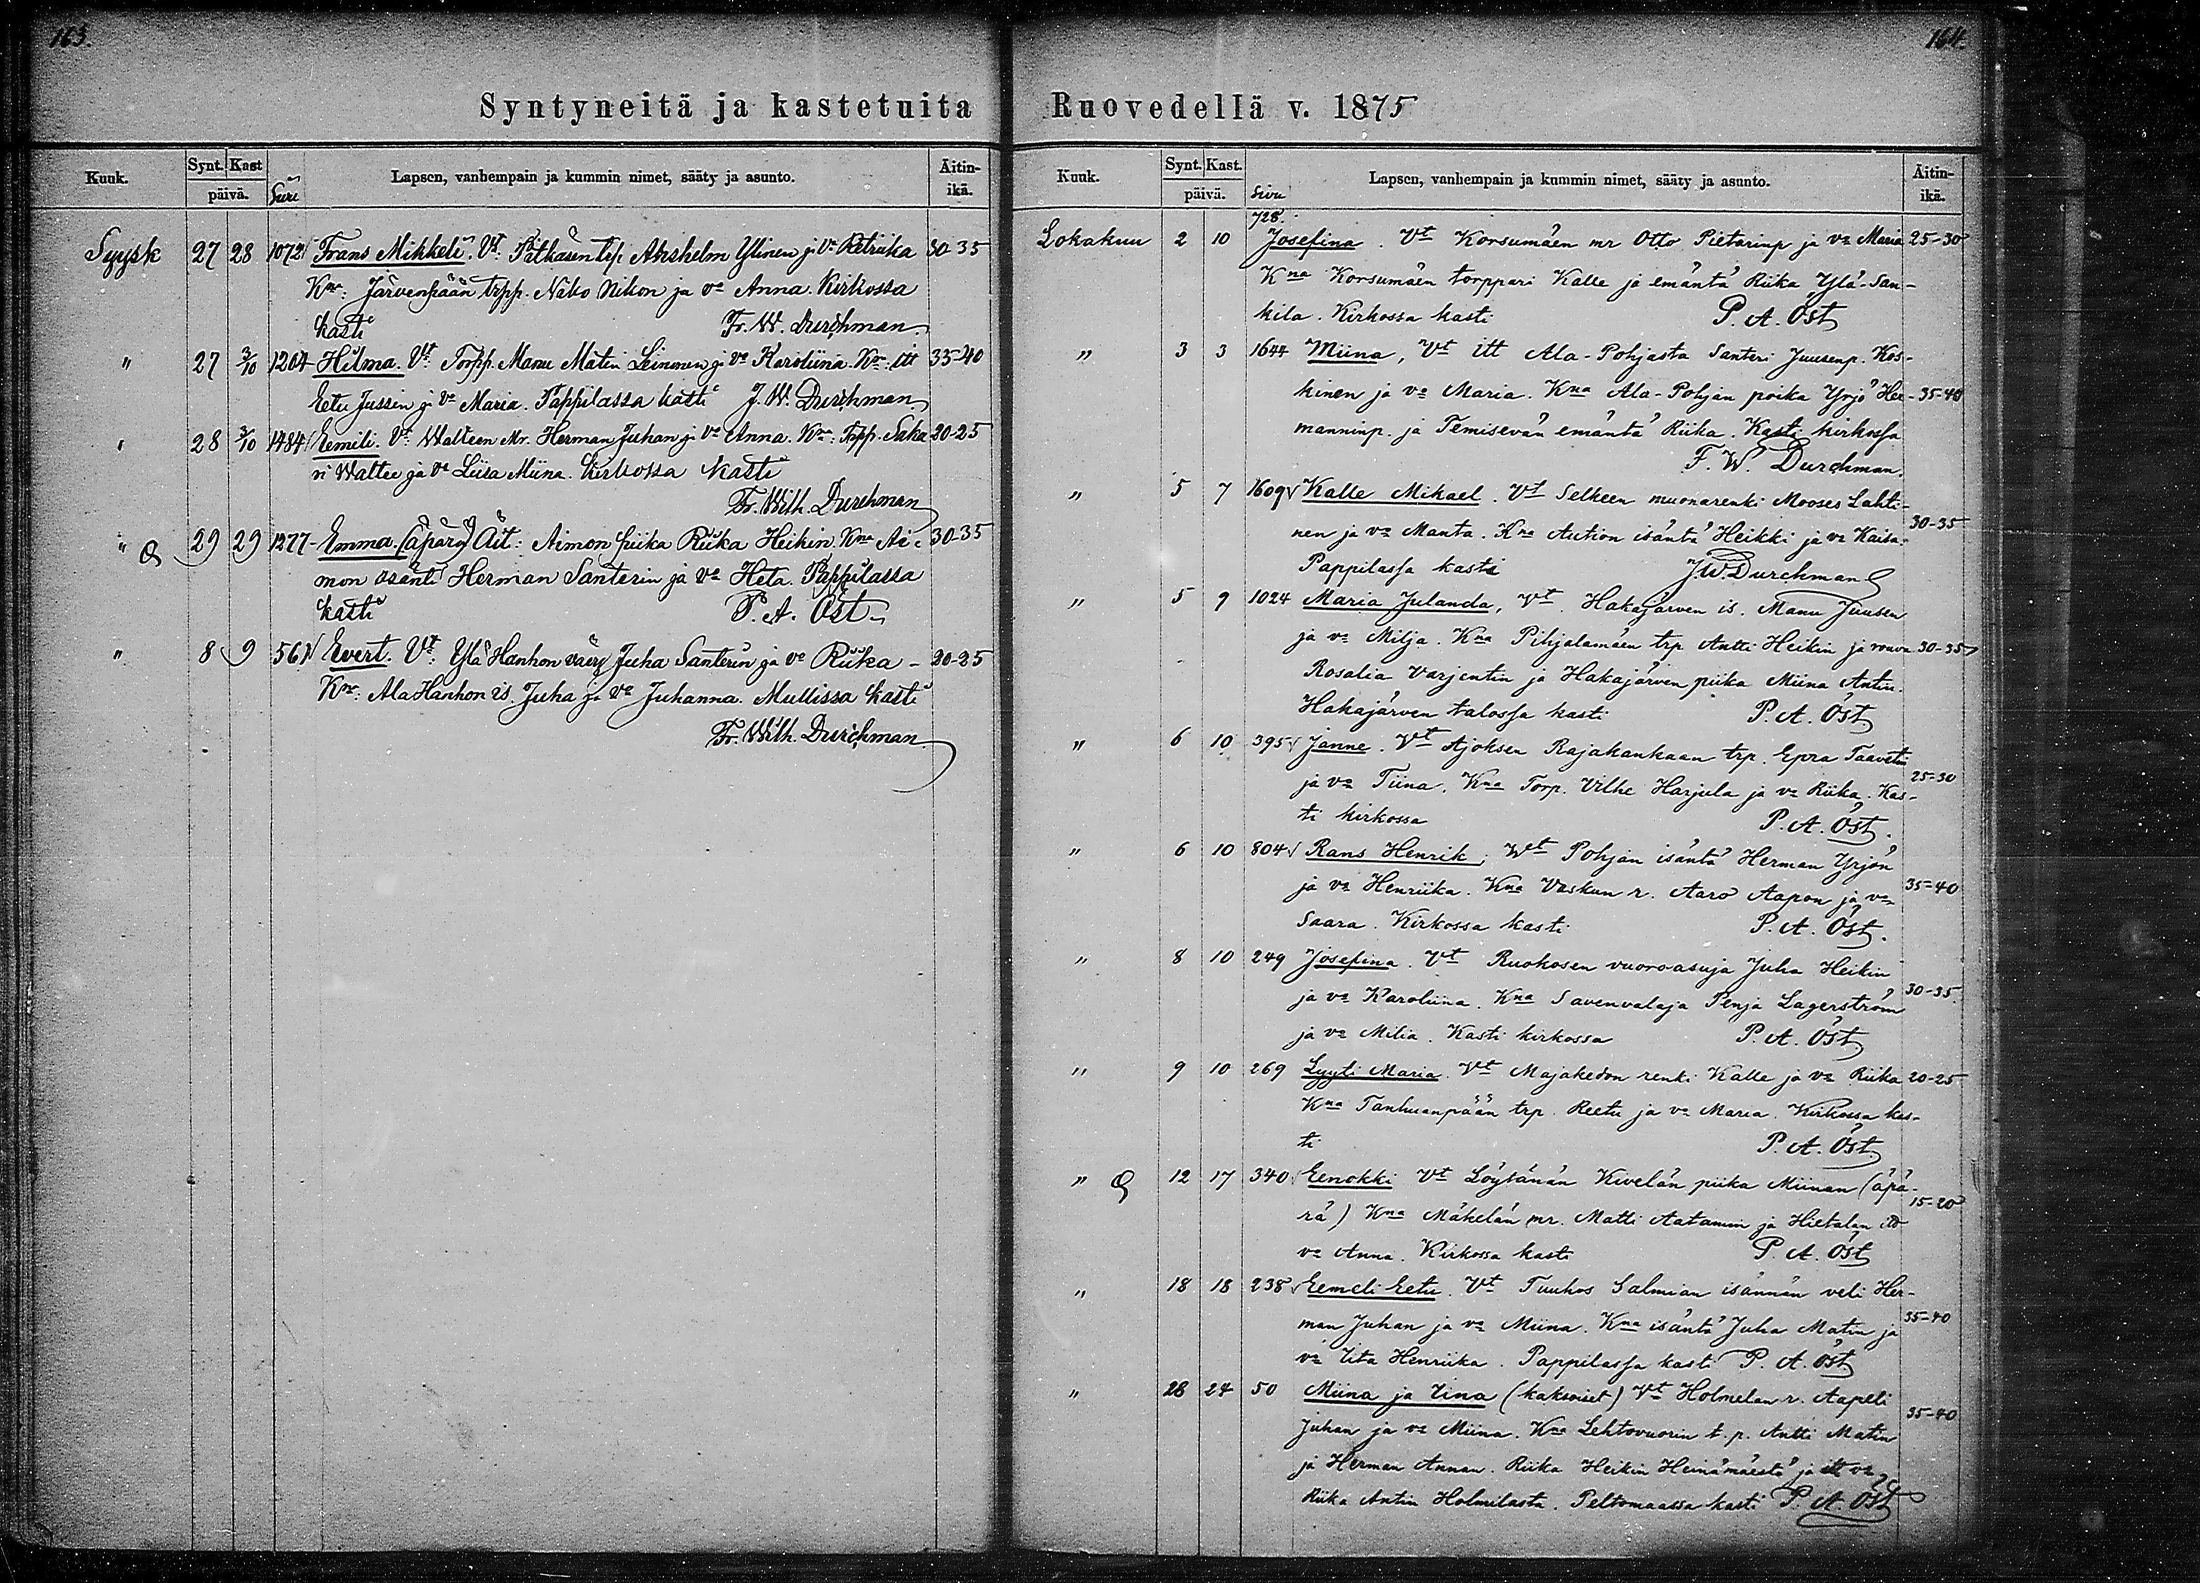 163.
Syntyneitä ja kastetuita
Kuuk. Synt. Kast päivä. Sivu Lapsen, vanhempain ja kummin nimet, sääty ja asunto. Äitin-ikä.
Syysk 27 28 1072 Frans Mikkeli. Vt. Pitkäsen trp. Ahshelm Ylinen ja Vo Retriika 30-35
Kna: Järvenpään trpp. Nato Nikon ja vo Anna. Kirkossa
kasti Fr. W. Durchman.
" 27 3/10 1204 Hilma. Vt. Torpp. Manu Matin Leinonen ja vo Karoliina. Kna: itt 35-40
Eetu Jussin ja vo Maria. Pappilassa kasti J. W. Durchman
" 28 3/10 1484 Eemili. Vt. Walteen Mr. Herman Juhan ja vo Anna. Kna: Trpp. Saka 20-25
ri Waltee ja vo Liisa Miina. Kirkossa kasti
Fr. Wilh. Durchman
" 29 29 1277 Emma. (äpärä) Äit: Aimon piika Riika Heikin. Kna Ai- 30-35
mon isäntä Herman Santerin ja vo Heta. Pappilassa
kasti P. A. Öst
" 8 9 561 Evert. Vt: Ylä Hanhon väery Juha Santerin ja vo Riika - 20-25
Kna: Ala Hanhon is. Juha ja vo Juhanna. Mullissa kasti
Fr. Wilh. Durchman
164.
Ruovedellä v. 1875
Kuuk. Synt. Kast. päivä. Sivu Lapsen, vanhempain ja kummin nimet, sääty ja asunto. Äitin-ikä.
728.
Lokakuu 2 10 Josefina. Vt Korsumäen mr Otto Pietarinp ja va Maria 25-30
Kna Korsumäen torppari Kalle ja emäntä Riika Ylä-San-
kila. Kirkossa kasti P. A. Öst
" 3 3 1644 Miina, Vt itt Ala-Pohjasta Santeri Juusenp. Kos-
kinen ja va Maria. Kna Ala-Pohjan poika Yrjö Her- 35-40
manninp. ja Temisevän emäntä Riika. Kasti kirkossa
F. W. Durchman.
" 5 7 1609 Kalle Mikael. Vt Selkeen muonarenki Mooses Lahti-
nen ja va Manta. Kna Aution isäntä Heikki ja va Kaisa. 30-35
Pappilassa kasti J. W. Durchman
" 5 9 1024 Maria Julanda, Vt. Hakajärven is. Manu Juusen
ja va Milja. Kna Pihjalamäen trp Antti Heikin ja rouva 30-35
Rosalia Varjentin ja Hakajärven piika Miina Antin.
Hakajärven talossa kasti P. A. Öst
" 6 10 395 Janne. Vt Ajoksen Rajakankaan trp. Epra Taavetin
ja va Tiina. Kna Torp. Vilhe Harjula ja va Riika. Kas- 25-30
ti kirkossa P. A. Öst.
" 6 10 804 Rans Henrik; Wt Pohjan isäntä Herman Yrjön
ja va Henriika. Kna Vaskun r. Aaro Aapon ja va 35-40
Saara. Kirkossa kasti P. A. Öst.
" 8 10 249 Josefina. Vt Ruokosen vuoroasuja Juha Heikin
ja va Karoliina. Kna Savenvalaja Penja Lagerström 30-35
ja va Milia. Kasti kirkossa P. A. Öst
" 9 10 269 Lyyti Maria. Vt Majakedon renki Kalle ja va Riika 20-25
Kna Tanhuanpään trp. Reetu ja va Maria. Kirkossa kas-
ti P. A. Öst
" 12 17 340 Eenokki Vt Löytänän Kivelän piika Miinan (äpä-
rä) Kna Mäkelän mr. Matti Aatamin ja Hietalan itt 15-20
va Anna. Kirkossa kasti P. A. Öst
" 18 18 238 Eemeli Eetu. Vt Tuuhos Salmian isännän veli Her-
man Juhan ja va Miina. Kna isäntä Juha Matin ja 35-40
va Iita Henriika. Pappilassa kasti P. A. Öst
" 28 24 50 Miina ja Iina (kaksoiset) Vt Holmelan r. Aapeli
Juhan ja va Miina. Kna Lehtovuorin t.p. Antti Matin 35-40
ja Herman Annan. Riika Heikin Heinämäestä ja itt va
Riika Antin Holmilasta. Peltomaassa kasti P. A. Öst